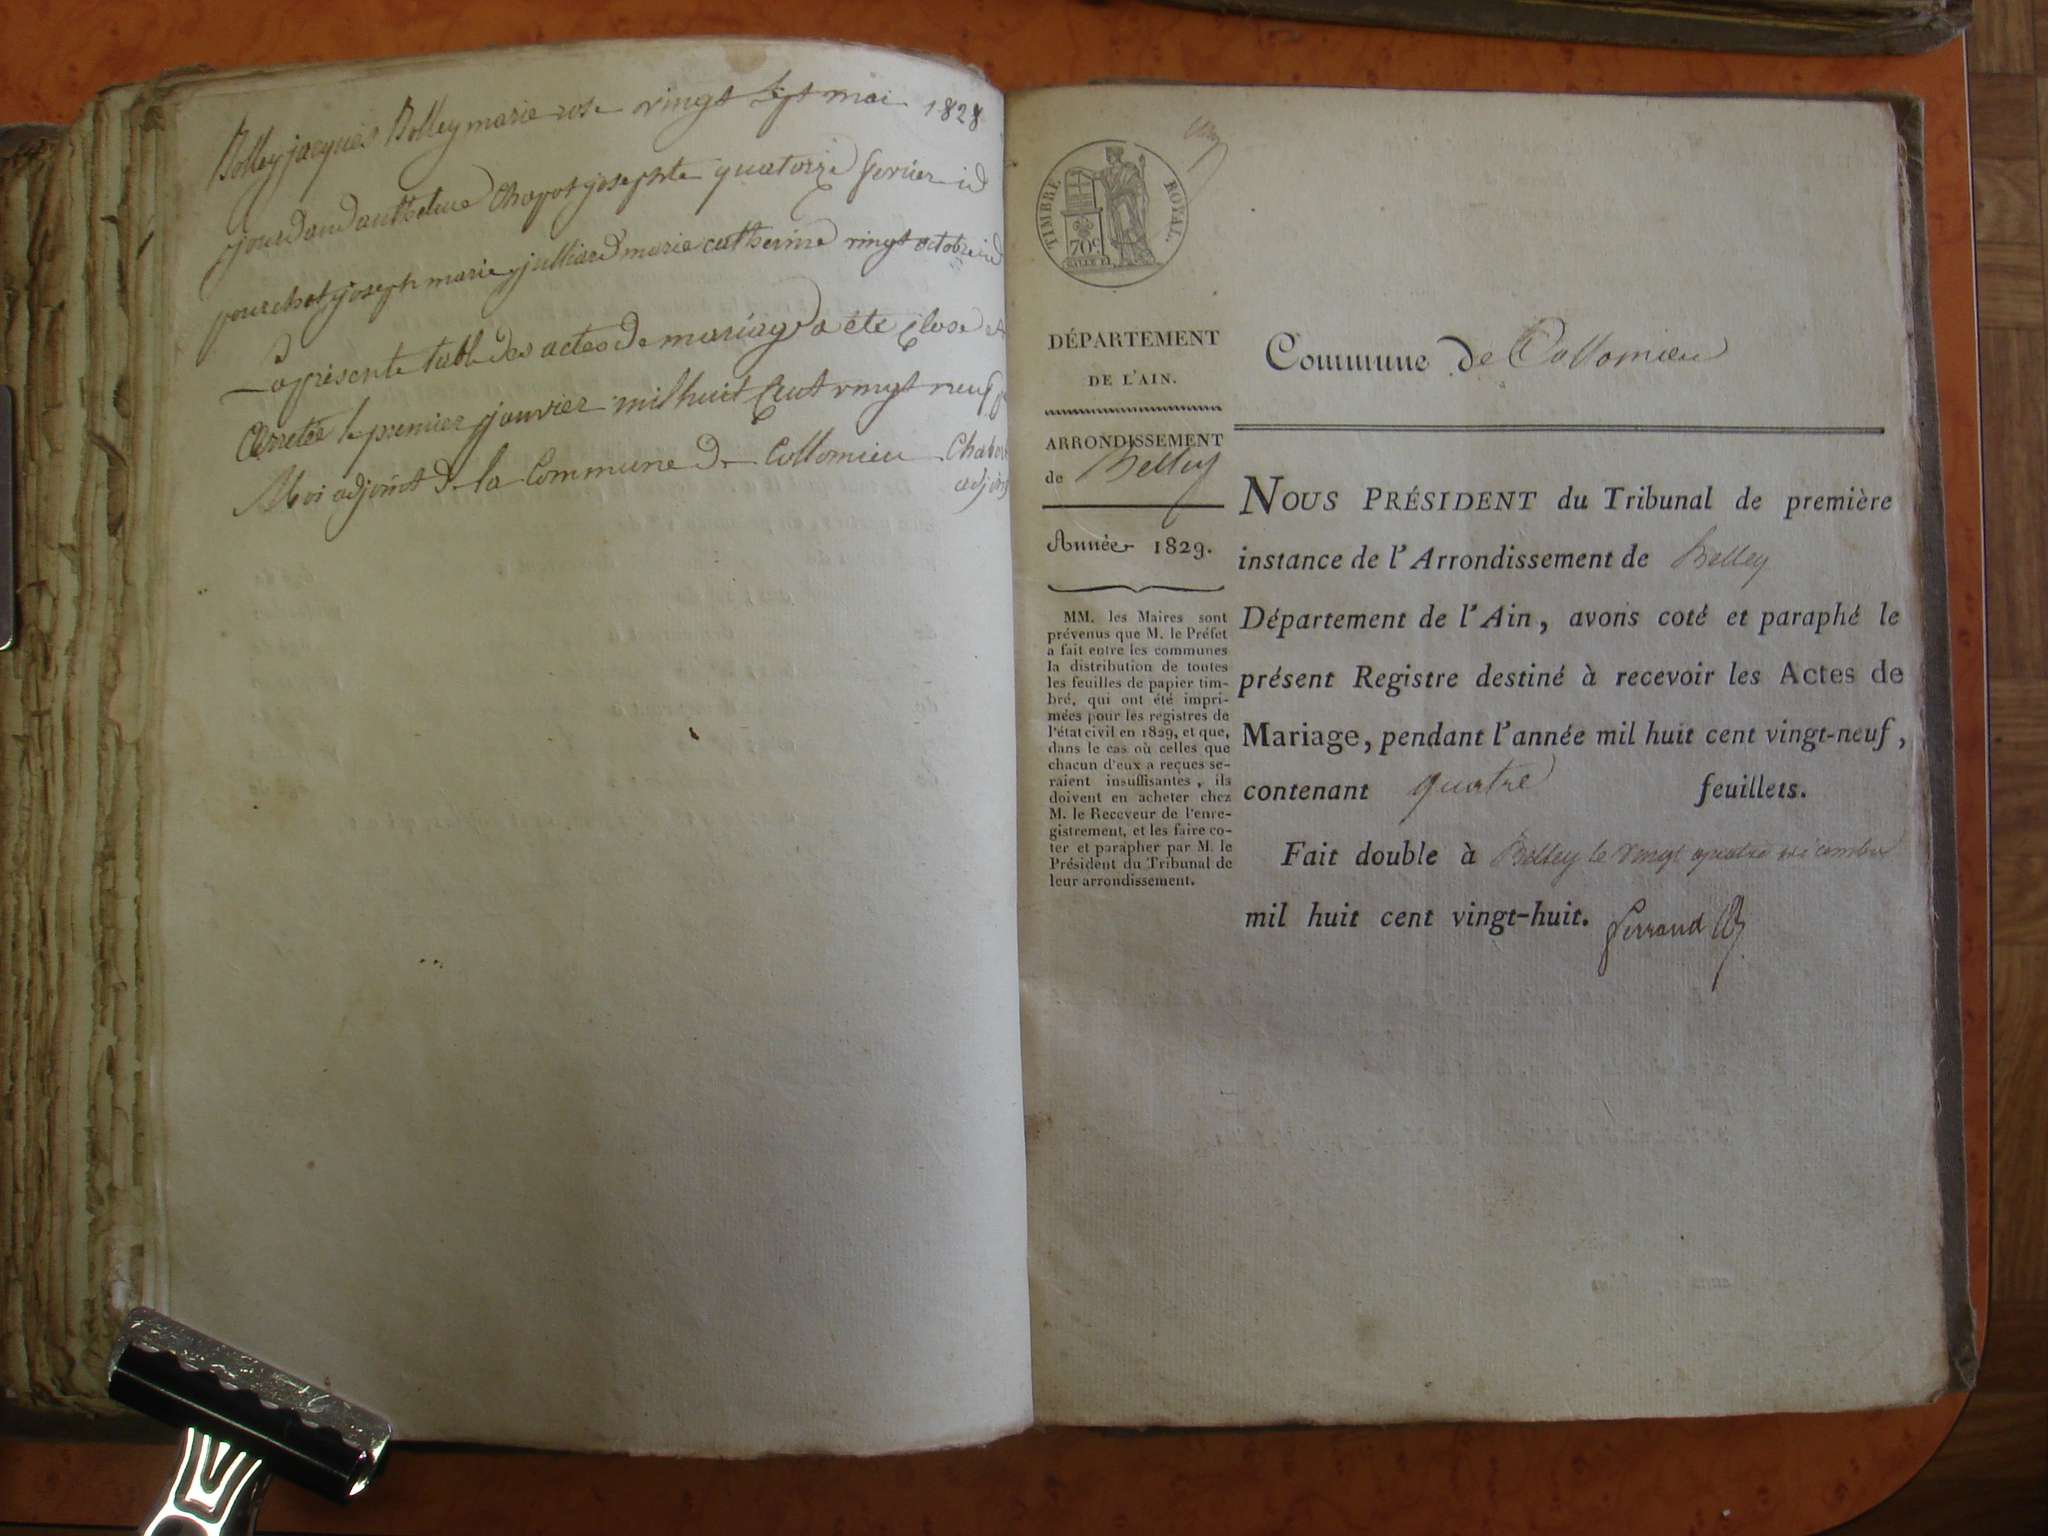 Bolley jacques Bolley marie rose vingt sept mai 1828
jourdand anthelme Chapot josephte quatorze fevrier id
pourchot joseph marie julliard marie catherine vingt octobre id
La présente table des actes de mariage a été Close et
Arretée le premier janvier mil huit Cent vingt neuf
Moi adjoint de la Commune de Collomieu
adjoint
TIMBRE ROYAL.
70c
DÉPARTEMENT
DE L'AIN.
ARRONDISSEMENT
de Belley
Année 1829.
MM. les Maires sont
prévenus que M. le Préfet
a fait entre les communes
la distribution de toutes
les feuilles de papier tim-
bré, qui ont été impri-
mées pour les registres de
l'état civil en 1829, et que,
dans le cas où celles que
chacun d'eux a reçues se-
raient insuffisantes, ils
doivent en acheter chez
M. le Receveur de l'enre-
gistrement, et les faire co-
ter et parapher par M. le
Président du Tribunal de
leur arrondissement.
Commune de Collomieu
NOUS PRÉSIDENT du Tribunal de première
instance de l'Arrondissement de Belley
Département de l'Ain, avons coté et paraphé le
présent Registre destiné à recevoir les Actes de
Mariage, pendant l'année mil huit cent vingt-neuf,
contenant quatre feuillets.
Fait double à Belley le vingt quatre décembre
mil huit cent vingt-huit. Ferrand